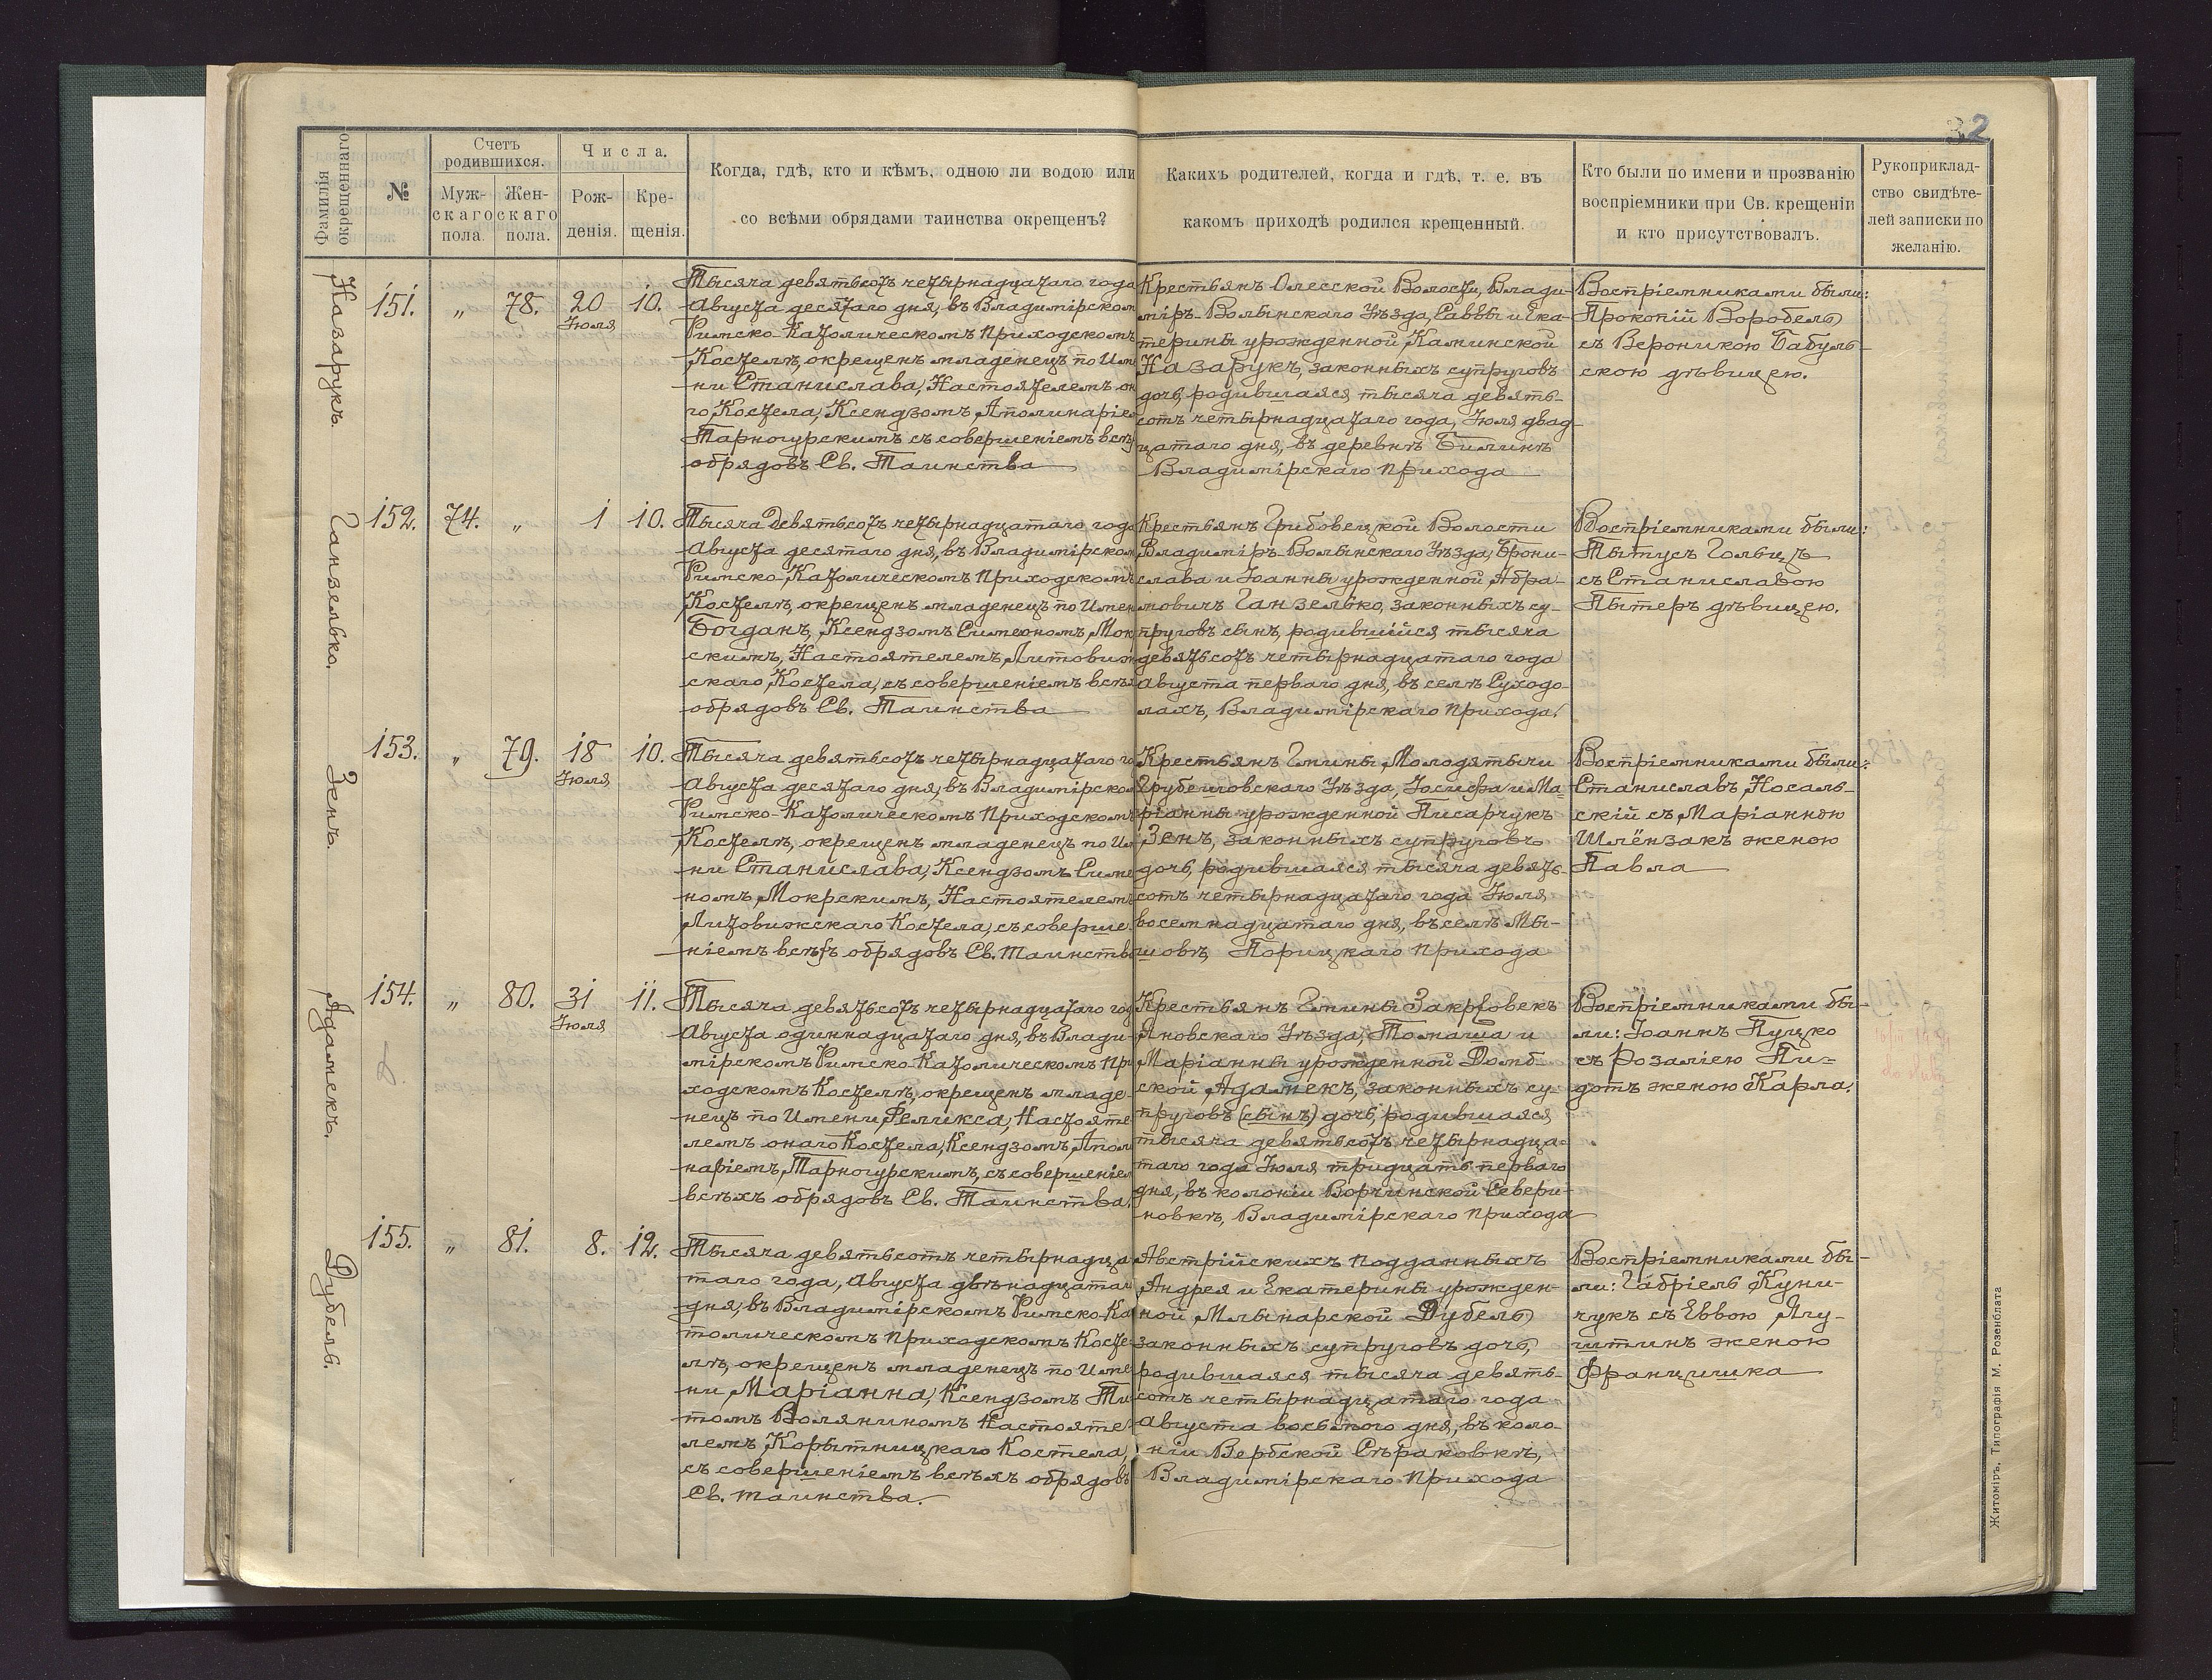 32
Фамилія окрещеннаго
№
Счетъ родившихся.
Муж-скаго пола.
Жен-скаго пола.
Числа.
Рож-денія.
Кре-щенія.
Когда, гдѣ, кто и кѣмъ, одною ли водою или
со всѣми обрядами таинства окрещенъ?
Какихъ родителей, когда и гдѣ, т. е. въ
какомъ приходѣ родился крещенный.
Кто были по имени и прозванію
воспріемники при Св. крещеніи
и кто присутствовалъ.
Рукоприклад-
ство свидѣте-
лей записки по
желанію.
Назарукъ.
151. „ 78. 20 Іюля 10.
Тысяча девятьсотъ четырнадцатаго года
Августа десятаго дня, въ Владимірском
Римско-Католическомъ Приходскомъ
Костелѣ, окрещенъ младенецъ по Име
ни Станислава, Настоятелемъ он
го Костела, Ксендзомъ Аполинаріем
Тарногурскимъ съ совершеніемъ всѣх
обрядовъ Св. Таинства
Крестьянъ Олесской Волости, Влади-
міръ-Волынскаго Уѣзда, Саввы и Ека-
терины урожденной Каминской
Назарукъ, законныхъ супруговъ
дочь, родившаяся тысяча девять-
сотъ четырнадцатаго года, Іюля двад-
цатаго дня, въ деревнѣ Билинѣ
Владимірскаго Прихода
Воспріемниками были:
Прокопій Воробель
съ Вероникою Бабуль-
скою дѣвицею.
Ганзелько.
152. 74. „ 1 10.
Тысяча Девятьсотъ четырнадцатаго года
Августа десятаго дня, въ Владимірском
Римско-Католическомъ Приходскомъ
Костелѣ, окрещенъ младенецъ по Имен
Богданъ, Ксендзомъ Симеономъ Мок
скимъ, Настоятелемъ Литовиж
скаго Костела, съ совершеніемъ всѣх
обрядовъ Св. Таинства
Крестьянъ Грибовецкой Волости
Владиміръ-Волынскаго Уѣзда, Брони-
слава и Іоанны урожденной Абра-
мовичъ Ганзелько, законныхъ су-
пруговъ сынъ, родившійся тысяча
девятьсотъ четырнадцатаго года
Августа перваго дня, въ селѣ Суходо-
лахъ, Владимірскаго Прихода.
Воспріемниками были:
Тытусъ Гольцъ
съ Станиславою
Пытеръ дѣвицею.
Зенъ.
153. „ 79. 18 Іюля 10.
Тысяча девятьсотъ четырнадцатаго го
Августа десятаго дня, въ Владимірском
Римско-Католическомъ Приходскомъ
Костелѣ, окрещенъ младенецъ по Им
ни Станислава, Ксендзомъ Симе
номъ Мокрскимъ, Настоятелем
Литовижскаго Костела, съ соверше-
ніемъ всѣхъ обрядовъ Св. Таинства
Крестьянъ Гмины Молодятычи
Грубешовскаго Уѣзда, Іосифа и Ма-
ріанны урожденной Писарчукъ
Зенъ, законныхъ супруговъ
дочь, родившаяся тысяча девять-
сотъ четырнадцатаго года Іюля
восемнадцатаго дня, въ селѣ Мы-
шовъ, Порицкаго Прихода
Воспріемниками были:
Станиславъ Носаль-
скій съ Маріанною
Шлёнзакъ женою
Павла
Адамекъ.
154. „ 80. 31 Іюля 11.
Тысяча девятьсотъ четырнадцатаго год
Августа одиннадцатаго дня, въ Влади-
мірскомъ Римско-Католическомъ При
ходскомъ Костелѣ, окрещенъ младе-
нецъ по Имени Феликса, Настояте
лемъ онаго Костела, Ксендзомъ Апол
наріемъ Тарногурскимъ, съ совершеніем
всѣхъ обрядовъ Св. Таинства.
Крестьянъ Гмины Закржовекъ
Яновскаго Уѣзда, Томаша и
Маріанны урожденной Домб-
ской Адамекъ, законныхъ су-
пруговъ (сынъ) дочь, родившаяся
тысяча девятьсотъ четырнадца-
таго года Іюля тридцать перваго
дня, въ колоніи Ворчинской Севери-
новкѣ, Владимірскаго Прихода
Воспріемниками бы-
ли: Іоаннъ Пуцко
съ Розаліею Пи-
дотъ женою Карла.
Дубель.
155. „ 81. 8. 12.
Тысяча девятьсотъ четырнадца
таго года, Августа двѣнадцатаг
дня, въ Владимірскомъ Римско-Ка
толическомъ Приходскомъ Косте-
лѣ, окрещенъ младенецъ по Име
ни Маріанна, Ксендзомъ Ти
томъ Воляниномъ Настояте
лемъ Корытницкаго Костела,
съ совершеніемъ всѣхъ обрядовъ
Св. таинства.
Австрійскихъ подданныхъ
Андрея и Екатерины урожден-
ной Млынарской Дубель
законныхъ супруговъ дочь,
родившаяся тысяча девять-
сотъ четырнадцатаго года
Августа восьмого дня, въ коло-
ніи Вербской Сѣраковкѣ,
Владимірскаго Прихода
Воспріемниками бы-
ли: Габріель Куни-
чукъ съ Еввою Ягу-
штинъ женою
Францишка
Житоміръ, Типографія М. Розенблата